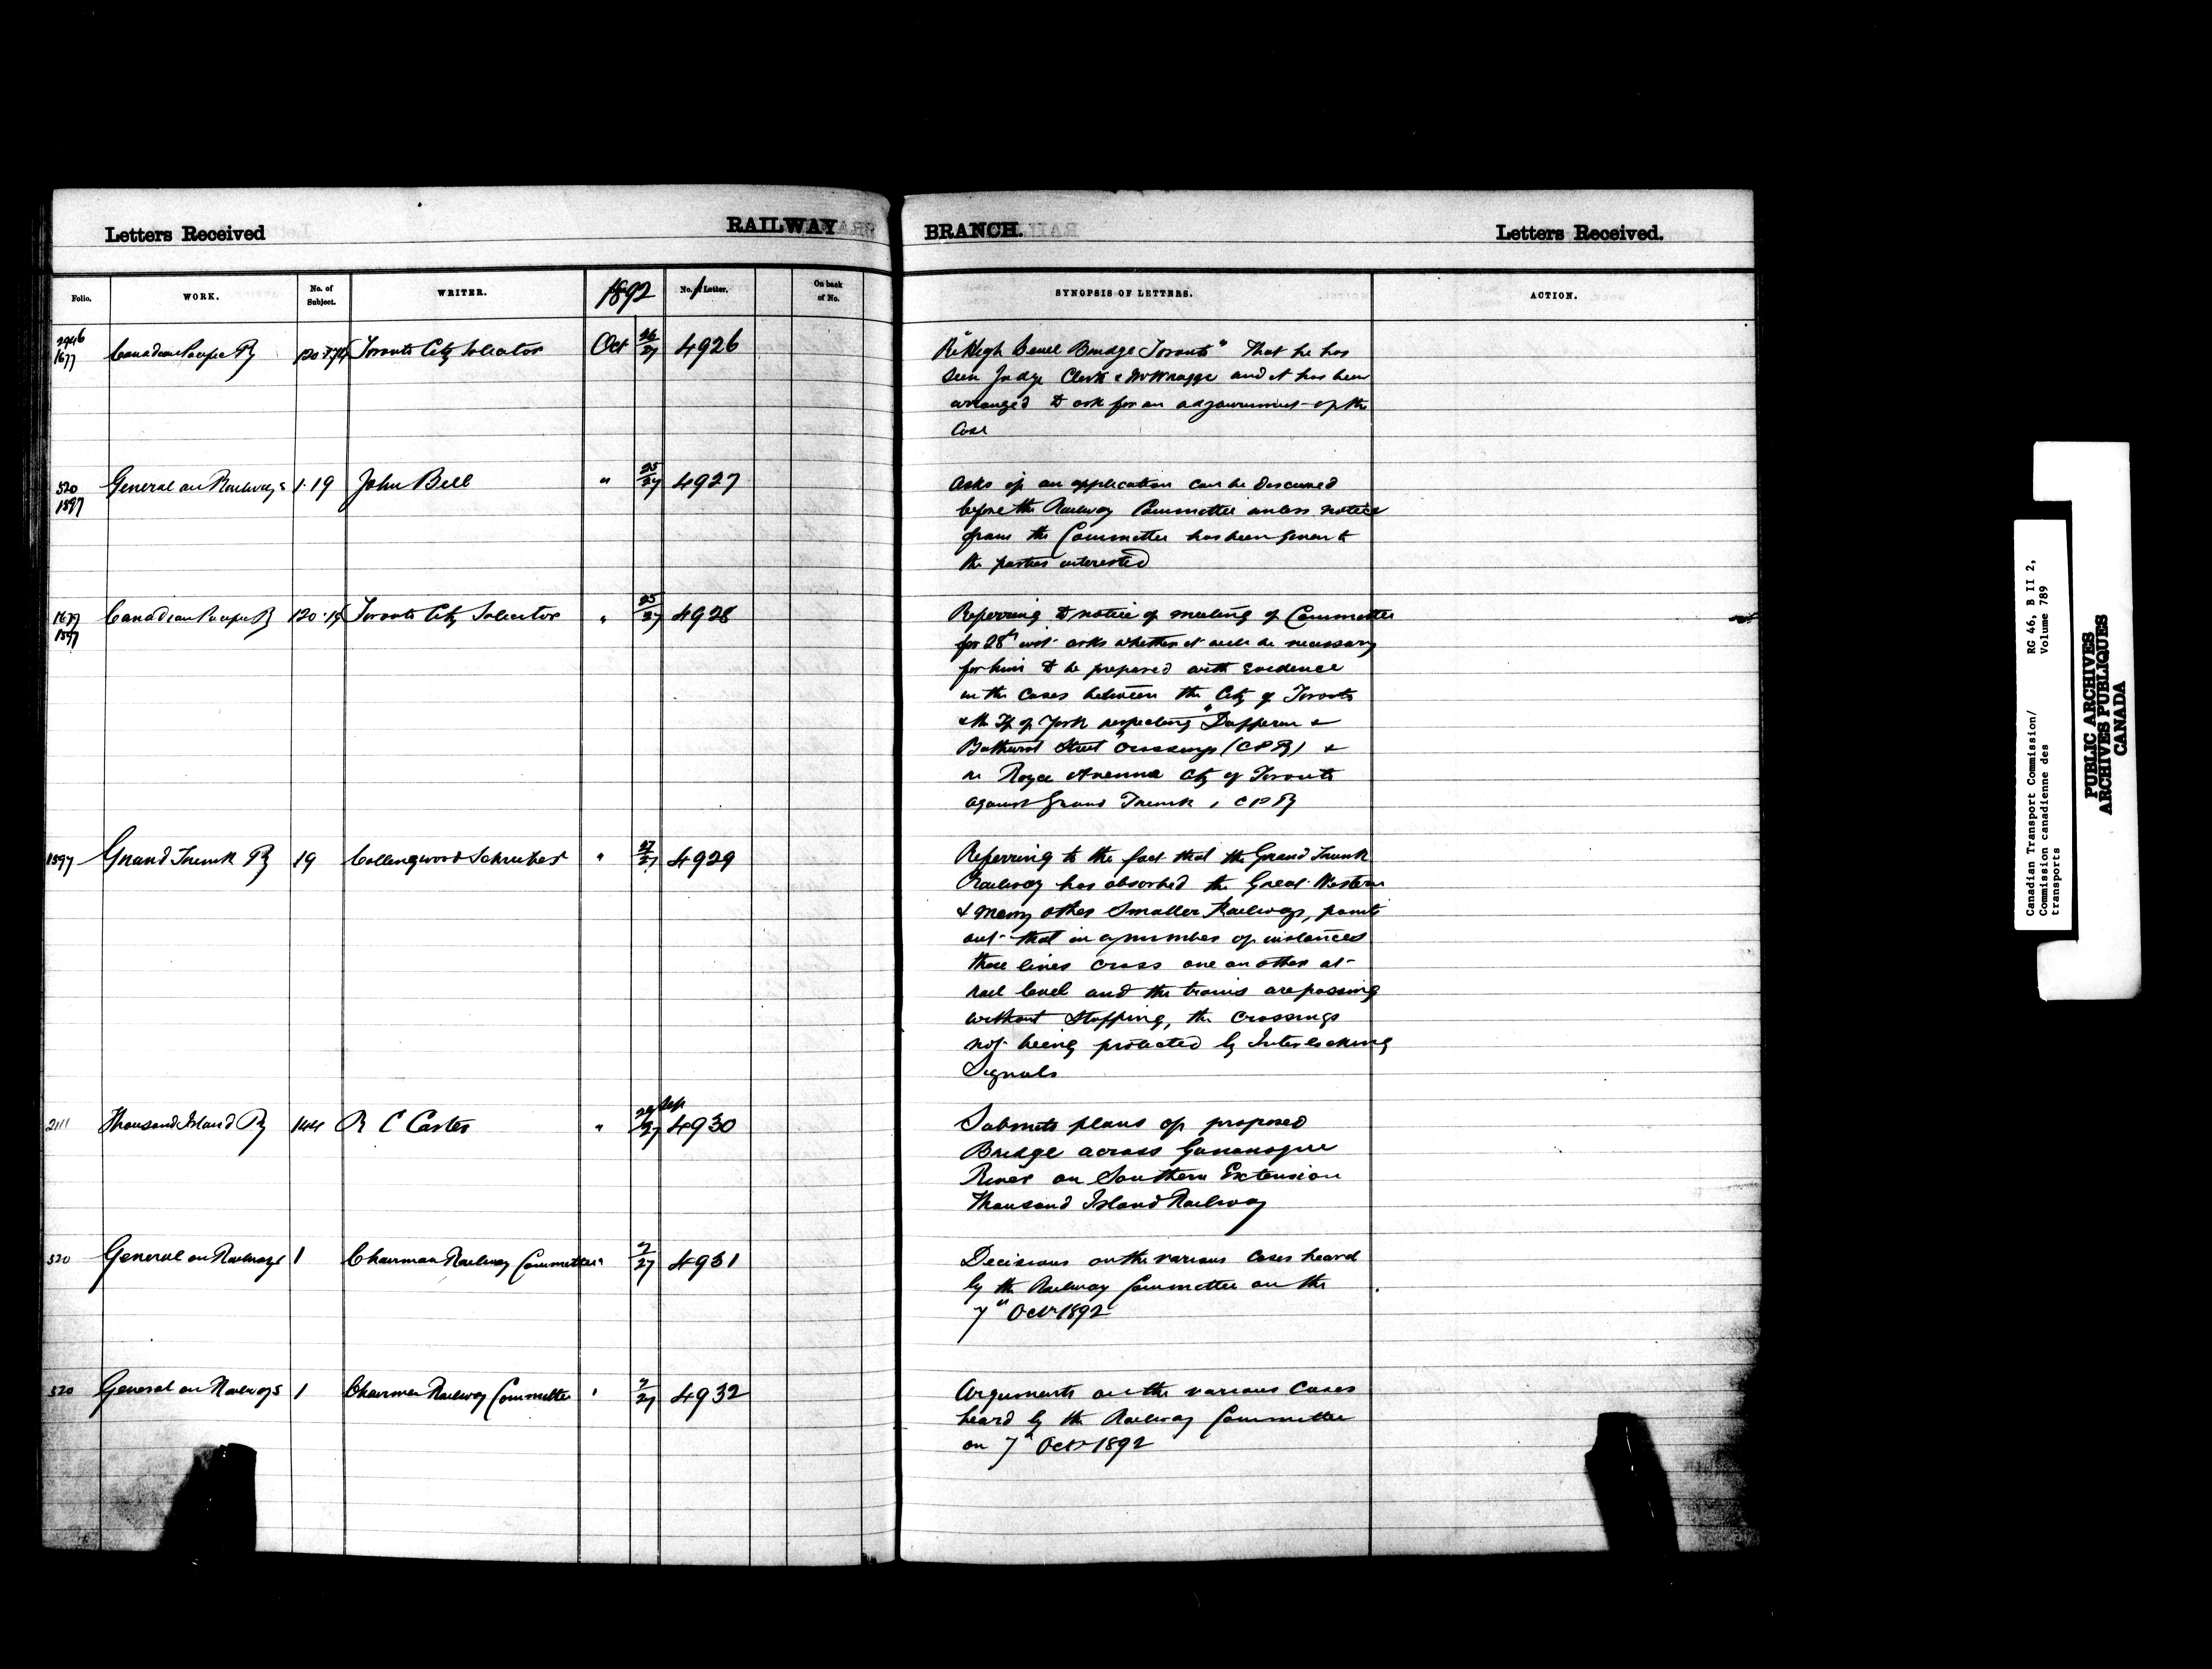 Letters Received
RAILWAY
BRANCH.
Letters Received.
Folio.
WORK.
No. of Subject.
WRITER.
1892
No. of Letter.
On back of No.
SYNOPSIS OF LETTERS.
ACTION.
1677
Canadian Pacific Ry
Toronto City Solicitor
Oct
26/27
4926
Re "High Level Bridge Toronto" That he has
seen Judge Clark & Mr Wragge and it has been
arranged to ask for an adjournment of the
Case
520
1897
General on Railways
1.19
John Bell
"
25/27
4927
Asks if an application can be discussed
before the Railway Committee unless notice
from the Committee has been given to
the parties interested
1677
1897
Canadian Pacific Ry
120.19
Toronto City Solicitor
"
25/27
4928
Referring to notice of meeting of Committee
for 28th inst. asks whether it will be necessary
for him to be prepared with evidence
in the cases between the City of Toronto
& the Tp of York respecting "Dufferin &
Bathurst Street" crossings (CPRy) &
re Royce Avenue City of Toronto
against Grand Trunk & CPRy
1897
Grand Trunk Ry
19
Collingwood Schreiber
"
27/27
4929
Referring to the fact that the Grand Trunk
Railway has absorbed the Great Western
& many other smaller Railways, points
out that in a number of instances
these lines cross one another at
rail level and the trains are passing
without stopping, the crossings
not being protected by Interlocking
Signals
2111
Thousand Island Ry
144
R C Carter
"
29 Sep/27
4930
Submits plans of proposed
Bridge across Gananoque
River on Southern Extension
Thousand Island Railway
520
General on Railways
1
Chairman Railway Committee
"
7/27
4931
Decisions on the various cases heard
by the Railway Committee on the
7th Octr 1892
520
General on Railways
1
Chairman Railway Committee
"
7/27
4932
Arguments on the various cases
heard by the Railway Committee
on 7th Octr 1892
Canadian Transport Commission/
Commission canadienne des
transports
RG 46, B II 2,
Volume 789
PUBLIC ARCHIVES
ARCHIVES PUBLIQUES
CANADA